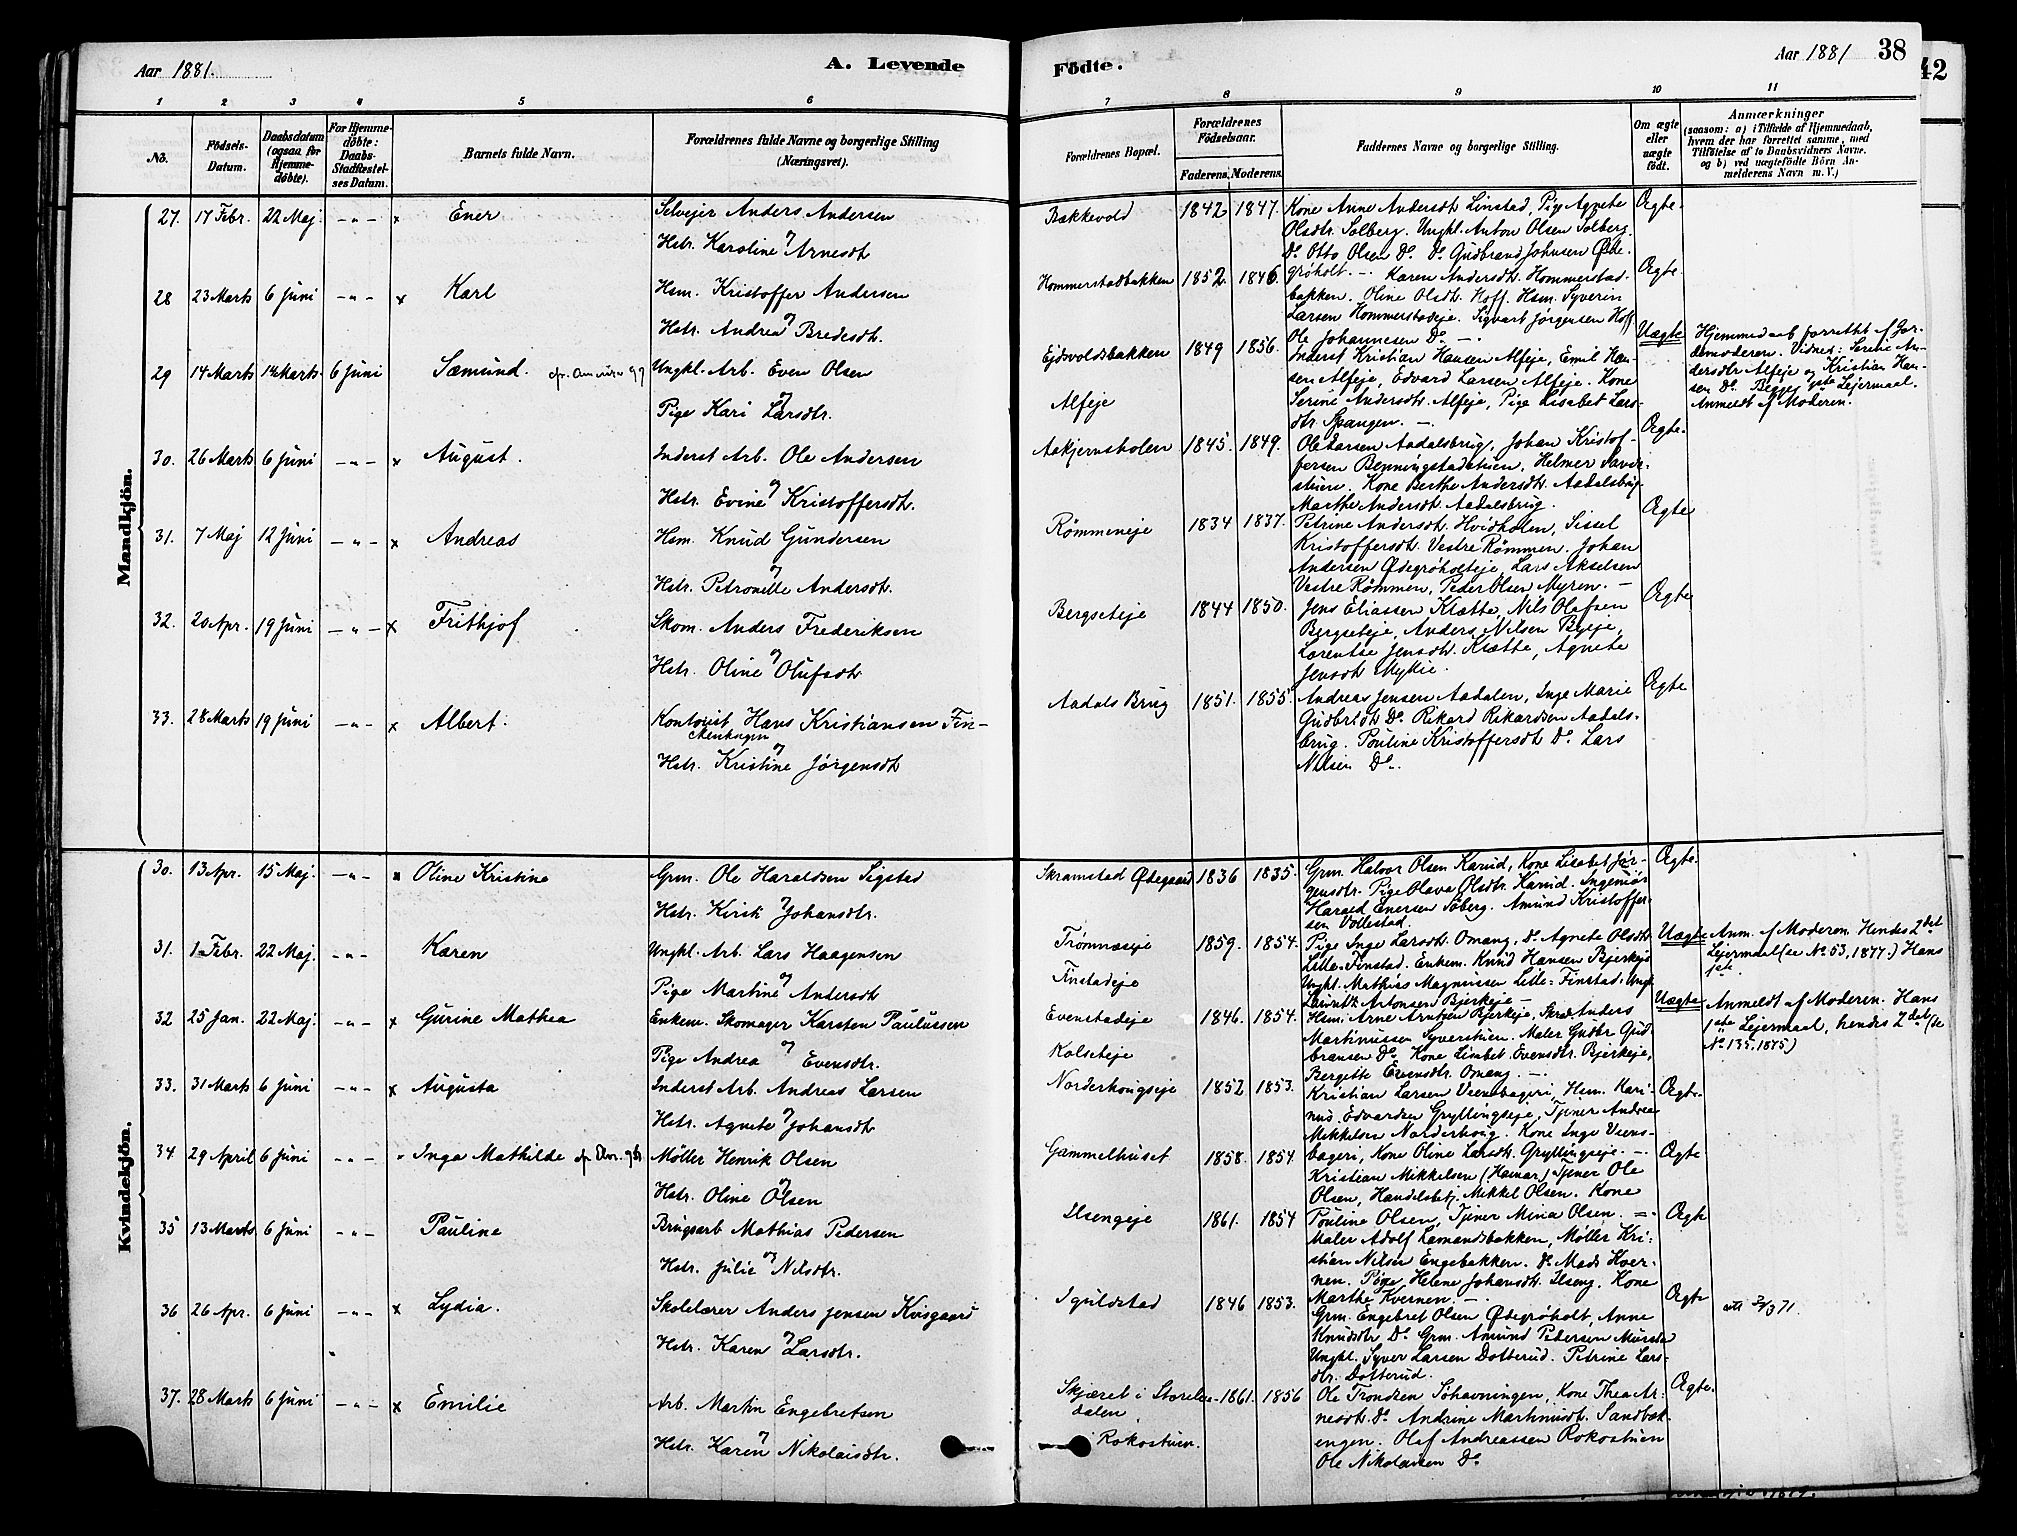 Aar 1881.
A. Levende
Födte.
Aar 1881
38
42
1 2 3 4 5 6 7 8 9 10 11
No.
Födsels-
Datum.
Daabsdatum
(ogsaa for
Hjemme-
döbte).
For Hjemme-
döbte:
Daabs-
Stadfæstel-
ses Datum.
Barnets fulde Navn.
Forældrenes fulde Navne og borgerlige Stilling
(Næringsvei).
Forældrenes Bopæl.
Forældrenes
Födselsaar.
Faderens. Moderens.
Faddernes Navne og borgerlige Stilling.
Om ægte
eller
uægte
födt.
Anmærkninger
(saasom: a) i Tilfælde af Hjemmedaab,
hvem der har forrettet samme, med
Tilföielse af to Daabsvidners Navne,
og b) ved uægtefödte Börn An-
melderens Navn m. V.)
Mandkjön.
27. 17 Febr. 22 Maj -"- x Ener
Selvejer Anders Andersen
Hstr. Karoline Arnesdt
Bækkevold 1842 1847.
Kone Anne Andersdt Linstad, Pige Agnete
Olsdtr. Solberg. Ungkl. Anton Olsen Solberg.
Do. Otto Olsen Do. Do. Gudbrand Johnsen Øde-
grøholt. -
Ægte.
28 23 Marts 6 Juni -"- x Karl
Hsm. Kristoffer Andersen
Hstr. Andrea Bredesdt.
Hommerstadbakken 1852. 1846.
Karen Andersdt. Hommerstad-
bakken. Oline Olsdt. Hoff. Hsm. Syveren
Larsen Hommerstadeje. Sigvart Jørgensen Hoff
Ole Johannesen Do. -
Ægte.
29 14 Marts 14 Marts 6 Juni Sæmund.
Ungkl. Arb. Even Olsen
Pige Kari Larsdtr.
Ejdsvoldsbakken 1849 1856.
Alfeje
Inderst Kristian Hansen Alfeje, Emil Han-
sen Alfeje, Edvard Larsen Alfeje. Kone
Serine Andersdt. Alfeje, Pige Lisabet Lars-
dtr. Spangen. -
Uægte
Hjemmedaab forrettet af Jor-
demoderen. Vidner: Serine An-
dersdtr Alfeje og Kristian Han-
sen Do. Begges 1ste Lejermaal.
Anmeldt af Moderen.
30. 26 Marts 6 Juni -"- x August.
Inderst Arb. Ole Andersen
Hstr. Evine Kristoffersdt.
Aakjernsholen 1845. 1849.
Ole Larsen Aadalsbrug, Johan Kristof-
fersen Benningstadstuen, Helmer
stuen. Kone Berthe Andersdt. Aadalsbrug
Marthe Andersdt. Aadalsbrug.
Ægte.
31. 7 Maj 12 Juni -"- x Andreas
Hsm. Knud Gundersen
Hstr. Petronelle Andersdt.
Rømmeneje 1834 1837.
Petrine Andersdt. Hvidholen, Sissel
Kristoffersdt. Vestre Rømmen. Johan
Andersen Ødegrøholteje, Lars Akselsen
Vestre Rømmen, Peder Olsen Myren. -
Ægte
32. 20 Apr. 19 Juni -"- x Frithjof
Skom. Anders Frederiksen
Hstr. Oline Olufsdt
Bergseteje 1844 1850.
Jens Eliassen Klætte, Nils Olafsen
Bergseteje, Anders Nilsen Byeje,
Lorentse Jensdt. Klætte, Agnete
Jensdt Myhre.
Ægte
33. 28 Marts 19 Juni -"- x Albert.
Kontorist Hans Kristiansen Fin-
ckenhagen
Hstr. Kristine Jørgensdt
Aadals Brug 1851. 1855.
Andreas Jensen Aadalen, Inge Marie
Gudbrdt Do. Rikard Rikardsen Aadals-
brug. Pouline Kristoffersdt Do. Lars
Nilsen Do.
Ægte
Kvindekjön.
30. 13 Apr. 15 Maj. -"- x Oline Kristine
Grm. Ole Haraldsen Sigstad
Hstr. Kirsti Johansdtr.
Skramstad Ødegaard 1836 1835.
Grm. Halvor Olsen Karud, Kone Lisabet Jør-
gensdtr. Pige Olava Olsdtr. Karud. Ingeniør
Harald Enersen Soberg. Amund Kristoffer-
sen Vollestad.
Ægte.
31. 1 Febr. 22 Maj -"- Karen
Ungkl. Arb. Lars Haagensen
Pige Martine Andersdt
Trømnæseje 1859. 1854.
Finstadeje
Pige Inge Larsdtr. Omang, Do. Agnete Olsdt
Lille-Finstad. Enkem. Knud Hansen Bjerkeje
Ungkl. Mathias Magnussen Lille-Finstad. Ungk
Lauritz Antonsen Bjerkeje -
Uægte
Anm. af Moderen. Hendes 2det
Lejermaal (se No. 53, 1877.) Hans
1ste.
32 25 Jan. 22 Maj. -"- x Gurine Mathea
Enkem. Skomager Karsten Paulussen
Pige Andrea Evensdtr.
Evenstadeje 1846. 1854.
Kolseteje
Hsm. Arne Arntsen Bjerkeje, Skræd. Anders
Martinussen Syverstuen. Maler Gudbr Gud-
bransen Do. Kone Lisabet Evensdtr. Bjerkeje,
Bergette Evensdtr. Omang. -
Uægte
Anmeldt af Moderen. Hans
1ste Lejermaal, hendes 2det (se
No. 135, 1875)
33. 31 Marts 6 Juni -"- x Augusta
Inderst Arb. Andreas Larsen
Hstr. Agnete Johansdt
Norderhougseje 1852 1853.
Kristian Larsen Veensbageri, Hsm. Mari-
nus Edvardsen Gryllingseje, Tjener Andreas
Mikkelsen Norderhoug. Kone Inge Veens-
bageri, Kone Oline Larsdt. Gryllingseje. -
Ægte
34 29 April 6 Juni -"- Inga Mathilde
Møller Henrik Olsen
Hstr. Oline Olsen
Gammelhuset 1858. 1854
Kristian Mikkelsen (Hamar) Tjener Ole
Olsen, Handelsbetj. Mikkel Olsen. Kone
Pouline Olsen, Tjener Mina Olsen. -
Ægte
35 13 Marts 6 Juni -"- Pauline
Brugsarb Mathias Pedersen
Hstr. Julie Nilsdtr.
Ilsengeje 1861. 1854
Maler Adolf Lamandsbakken, Møller Kri-
stian Nilsen Engebakken. Do. Mads Kver-
nen. Pige Helene Johansdt. Ilseng. Kone
Marthe Kvernen. -
Ægte
36 26 Apr. 6 Juni -"- x Lydia.
Skolelærer Anders Jensen Kvisgaard
Hstr. Karen Larsdtr.
Iguldstad 1846 1853.
Grm. Engebret Olsen Ødegrøholt, Anne
Knudsdtr Do. Grm. Amund Pedersen Mursta
Ungkl. Syver Larsen Dotterud. Petrine Lars-
dtr. Dotterud.
Ægte
37. 28 Marts 6 Juni -"- x Emilie
Arb. Martin Engebretsen
Hstr. Karen Nikolaisdtr.
Skjæret i Storelv- 1861. 1856
dalen,
Rokostuen.
Ole Trondsen Sohavningen, Kone Thea Ar-
nesdt Do. Andrine Martinusdt. Sandbæk-
engen. Olaf Andreassen Rokostuen
Ole Nikolaisen Do.
Ægte.